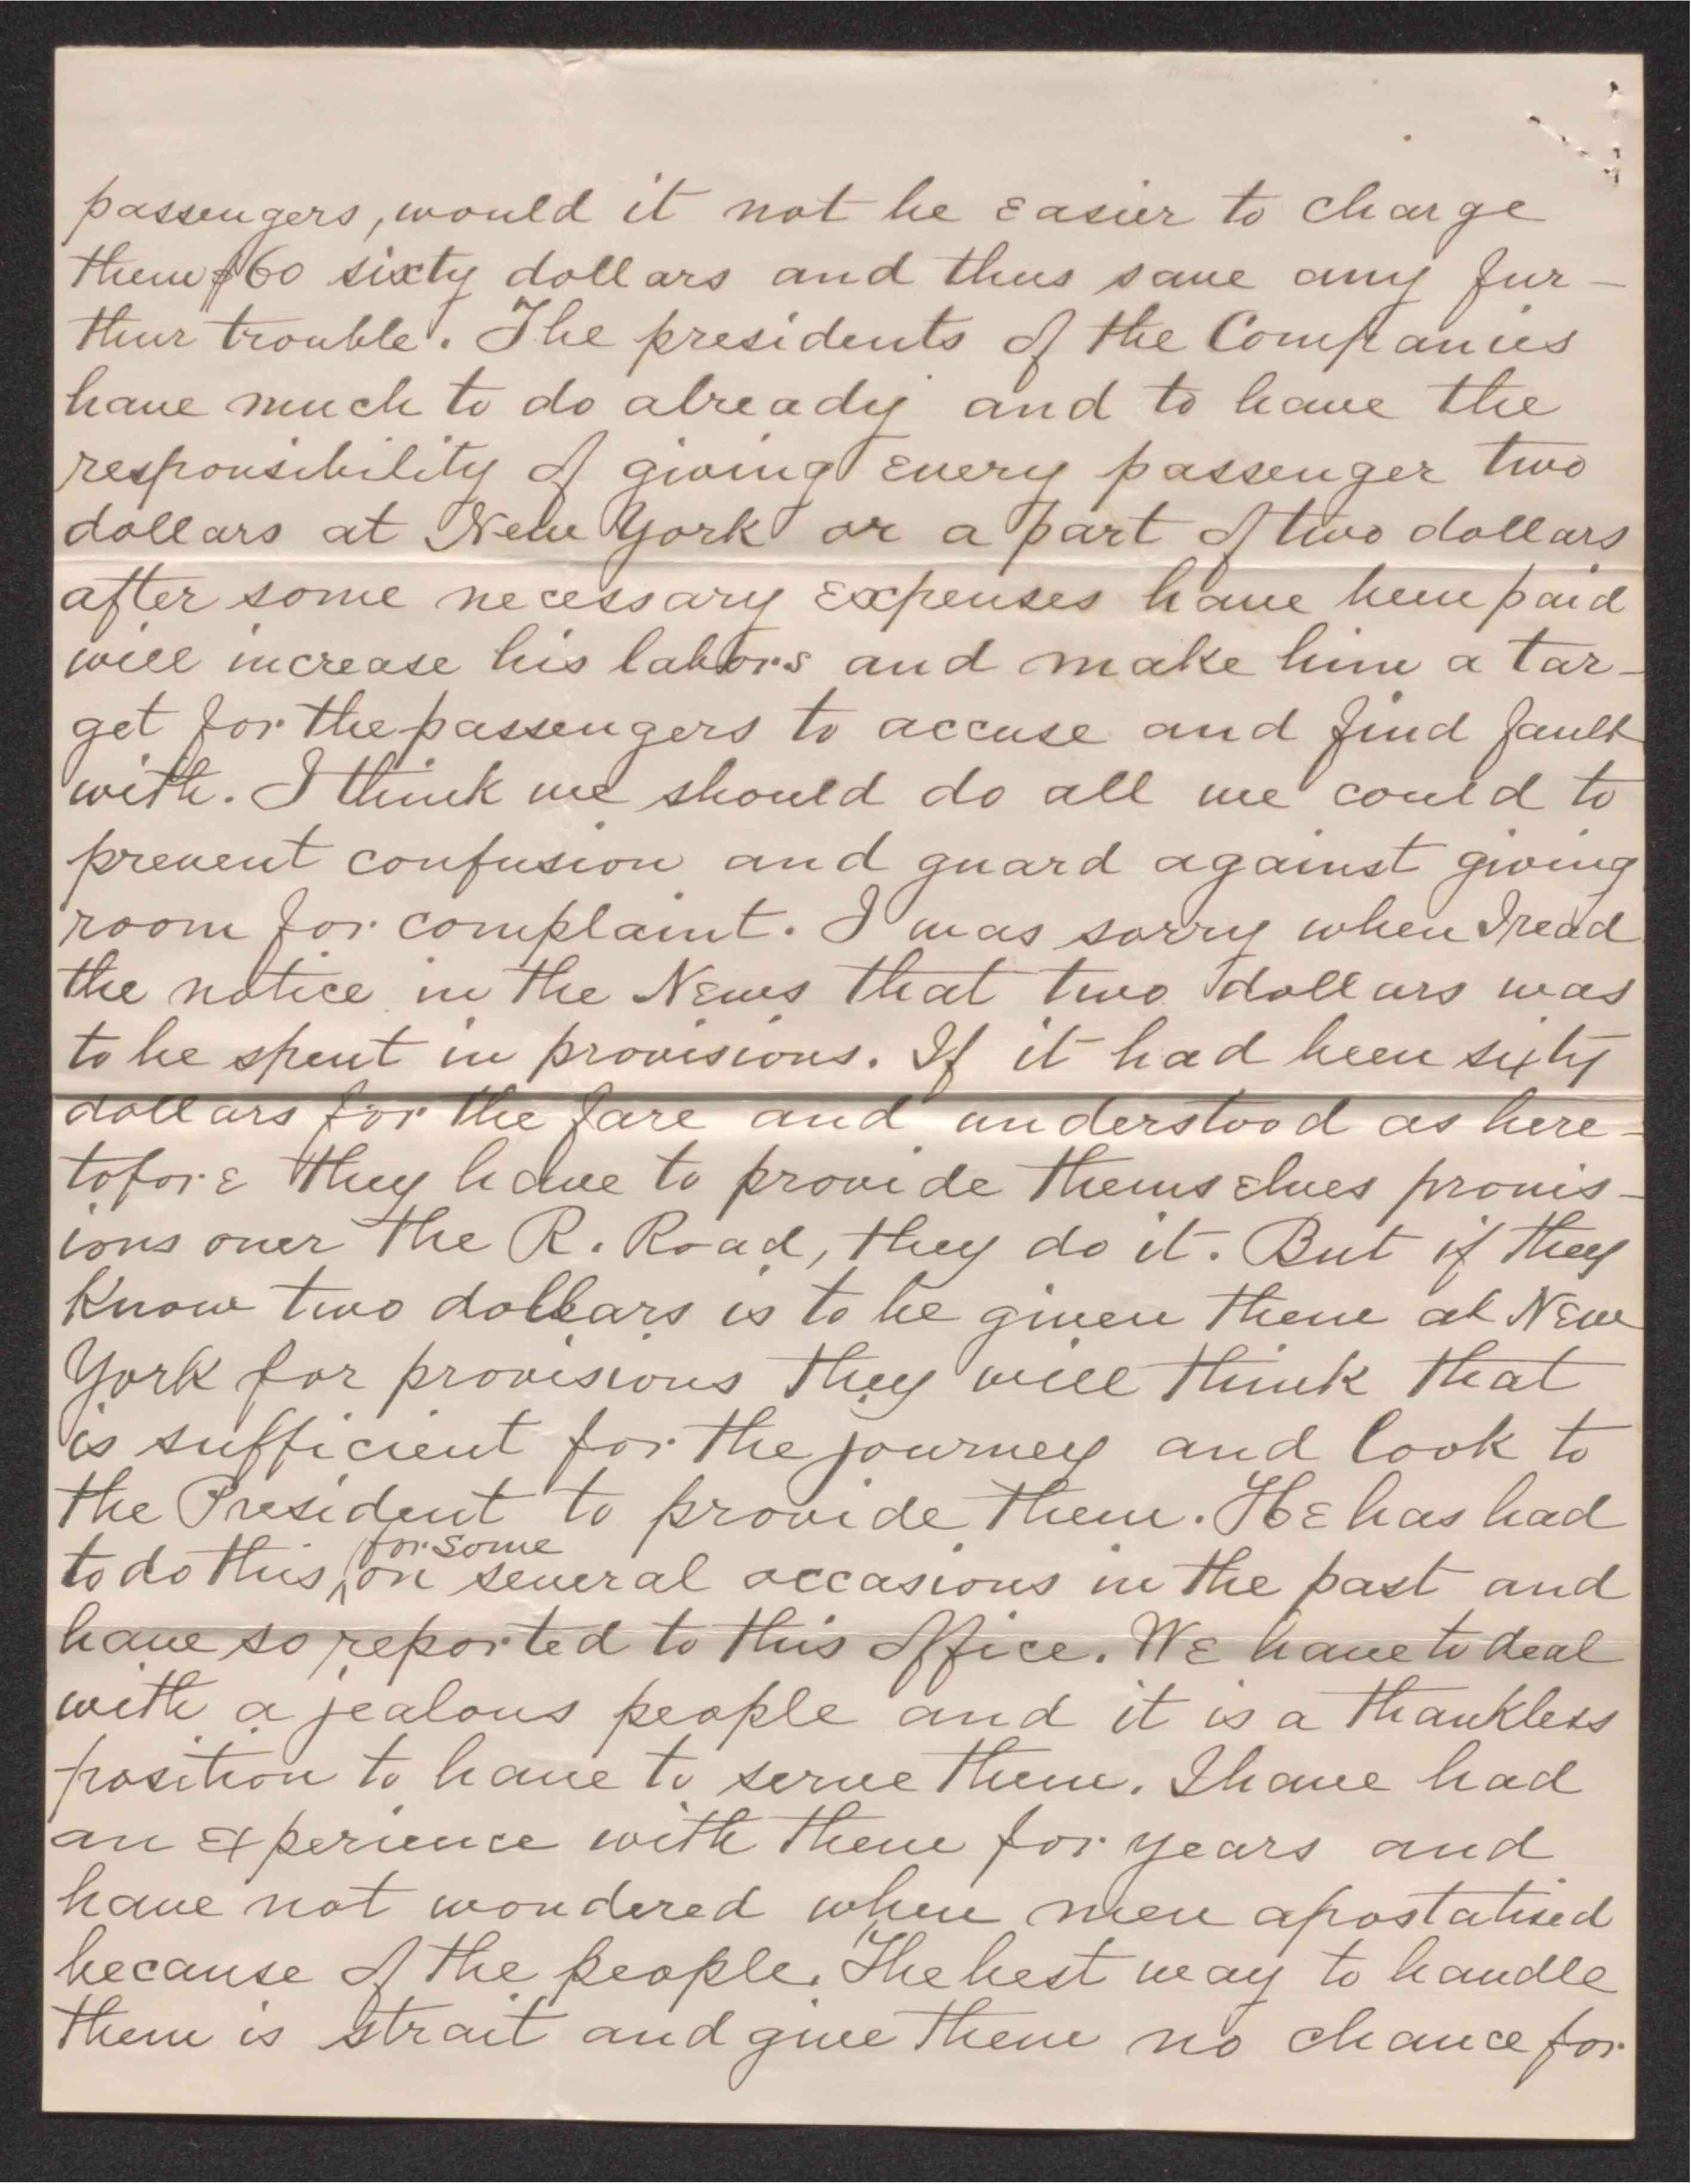 passengers, would it not be easier to charge
them $60 sixty dollars and thus save any fur-
ther trouble. The presidents of the Companies
have much to do already and to have the
responsibility of giving every passenger two
dollars at New York or a part of two dollars
after some necessary expenses have been paid
will increase his labors and make him a tar-
get for the passengers to accuse and find fault
with. I think we should do all we could to
prevent confusion and guard against giving
room for complaint. I was sorry when I read
the notice in the News that two dollars was
to be spent in provisions. If it had been sixty
dollars for the fare and understood as here-
tofore they have to provide themselves provis-
ions over the R. Road, they do it. But if they
Know two dollars is to be given them at New
York for provisions they will think that
is sufficient for the journey and look to
the President to provide them. He has had
for some
to do this, on several occasions in the past and
have so reported to this office. We have to deal
with a jealous people and it is a thankless
position to have to serve them. I have had
an experience with them for years and
have not wondered when men apostatised
because of the people. The best way to handle
them is strait and give them no chance for